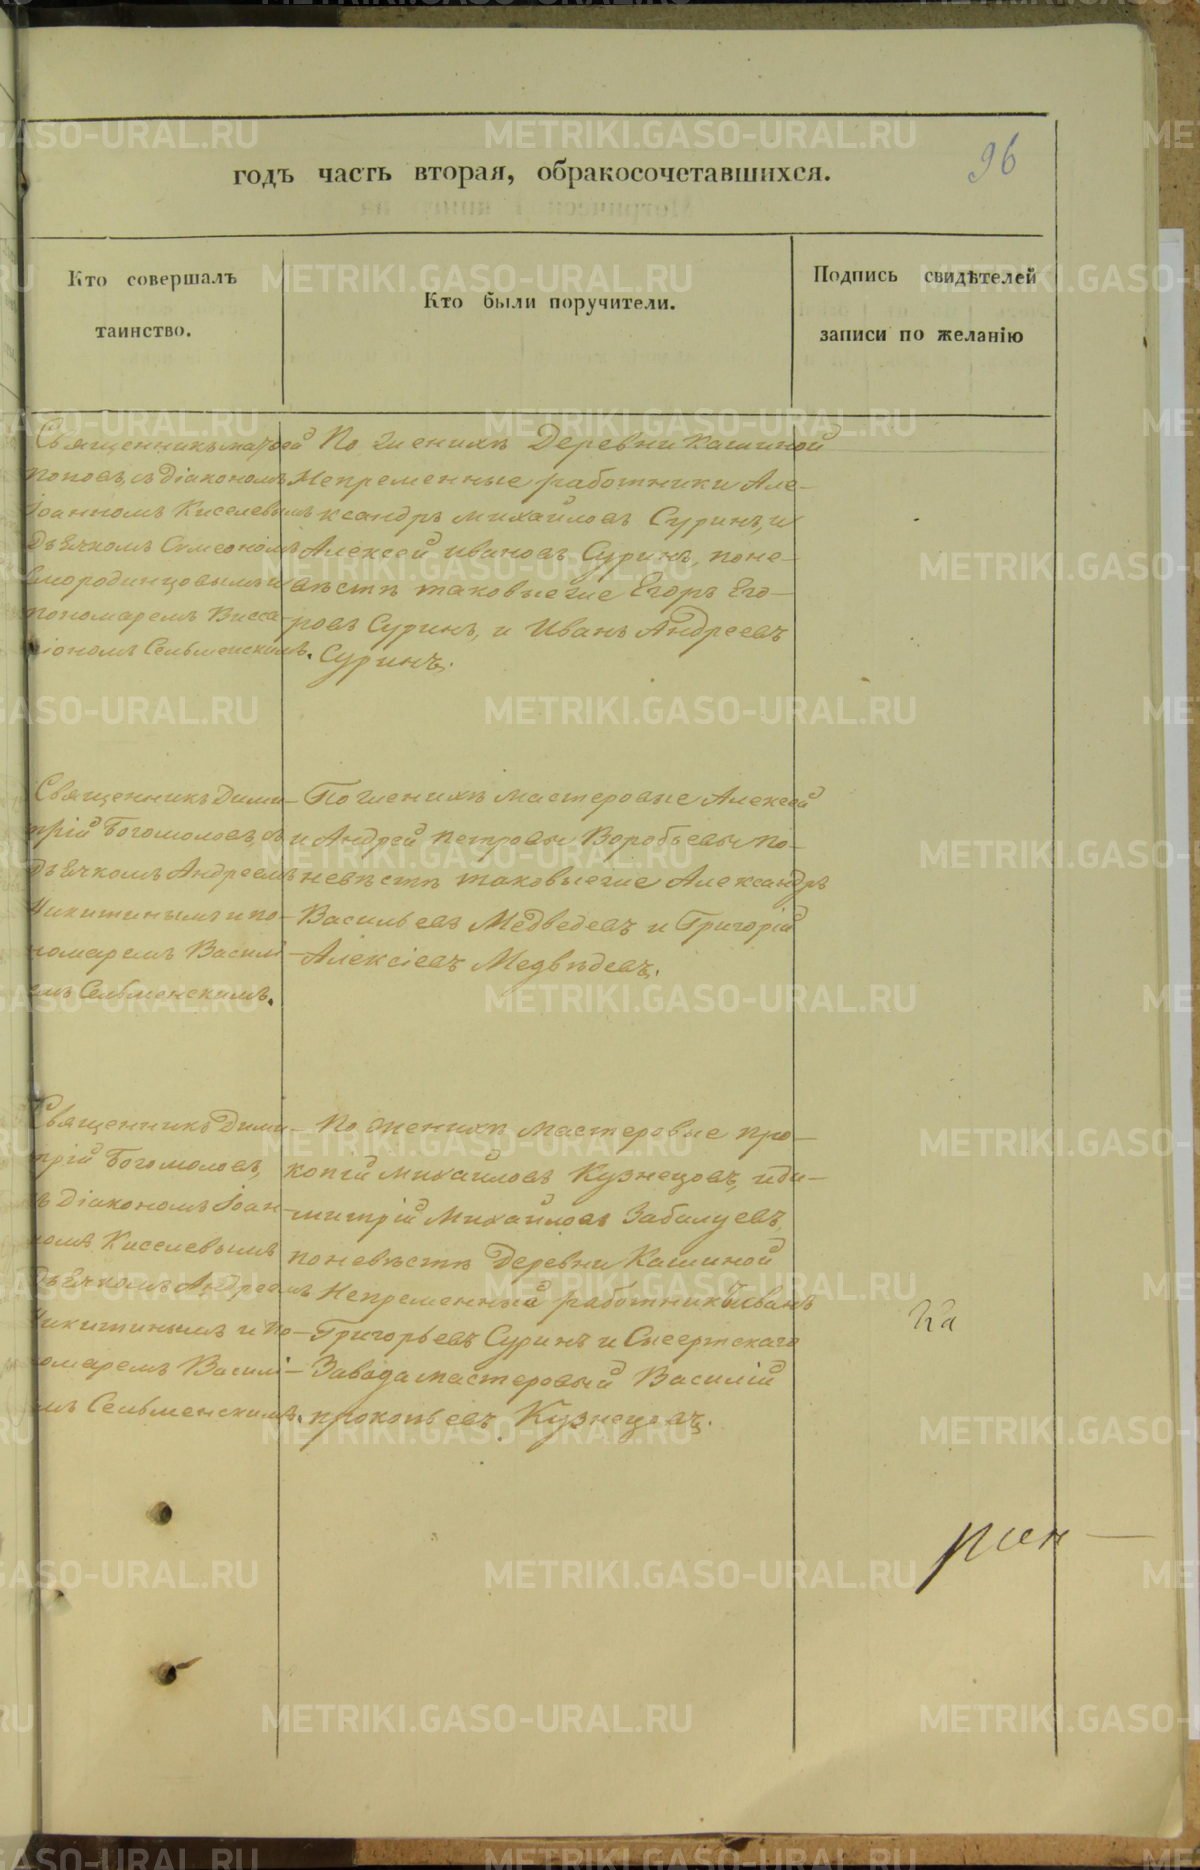 96
годъ часть вторая, обракосочетавшихся.
Кто совершалъ
таинство.
Кто были поручители.
Подпись свидѣтелей
записи по желанію
Священникъ Матѳей
Поповъ, съ Діакономъ
Іоанномъ Киселевымъ
Дьячкомъ Симеономъ
Смородинцовымъ и
пономаремъ Висса-
ріономъ Сельменскимъ.
По женихѣ Деревни Кашиной
Непременные работники Але-
ксандръ Михайловъ Суринъ, и
Алексей Ивановъ Суринъ, поне-
вѣстѣ таковыеже Егоръ Его-
ровъ Суринъ, и Иванъ Андреевъ
Суринъ.
Священникъ Дими-
трій Богомоловъ, съ
Дьячкомъ Андреемъ
Никитинымъ и по-
номаремъ Васили-
емъ Сельменскимъ.
По женихѣ мастеровые Алексей
и Андрей Петровы Воробьевы по-
невѣстѣ таковыеже Александръ
Васильевъ Медведевъ и Григорій
Алексіевъ Медвѣдевъ.
Священникъ Дими-
трій Богомоловъ,
съ Діакономъ Іоан-
номъ Киселевымъ
Дьячкомъ Андреемъ
Никитинымъ и По-
номаремъ Василі-
емъ Сельменскимъ.
По женихѣ мастеровые Про-
копій Михайловъ Кузнецовъ, и Ди-
митрій Михайловъ Забалуевъ,
поневѣстѣ Деревни Кашиной
Непременный работникъ Иванъ
Григорьевъ Суринъ и Сысертскаго
Завода мастеровый Василій
Прокопьевъ Кузнецовъ.
METRIKI.GASO-URAL.RU